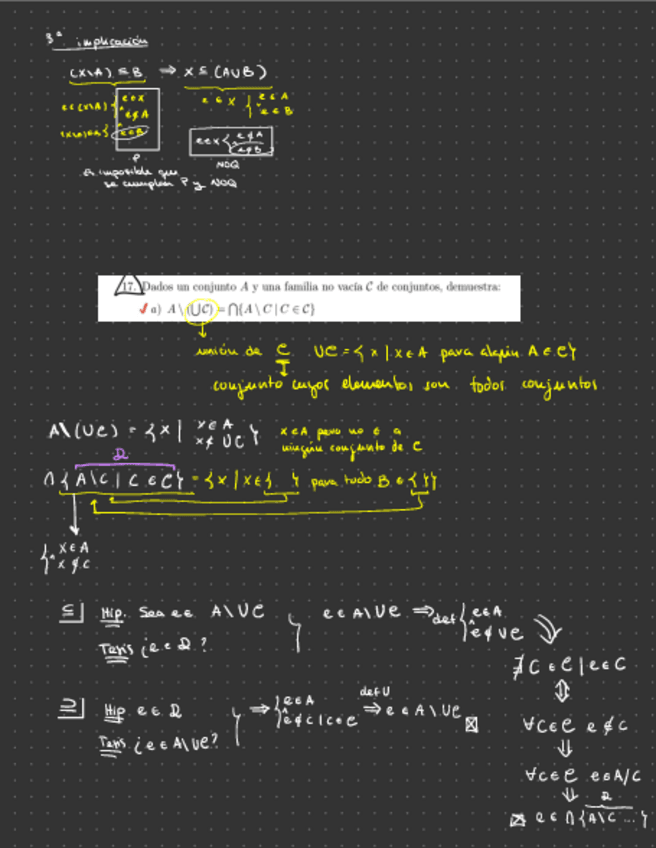 3ª implicación
(X\A) ⊆ B ⇒ X ⊆ (A∪B)
e∈(X\A) { e∈X
e∉A
e∈B
e∈X { e∈A
e∈B
e∈X { e∉A
e∉B
P
NOQ
Es imposible que
se cumplan P y NOQ
17. Dados un conjunto A y una familia no vacía 𝒞 de conjuntos, demuestra:
✓ a) A \ (⋃𝒞) = ⋂{A \ C | C ∈ 𝒞}
unión de 𝒞 ∪𝒞 = { x | x∈A para algún A∈𝒞 }
conjunto cuyos elementos son todos conjuntos
A\(∪𝒞) = { x | x∈A
x∉∪𝒞 }
x∈A pero no ∈ a
ningún conjunto de 𝒞
Ω
∩{ A\C | C∈𝒞 } = { x | x∈{ } para todo B∈{ }}
{ x∈A
x∉C
⊆ Hip. Sea e∈ A\∪𝒞
Tesis ¿e∈Ω?
e∈A\∪𝒞 ⇒def { e∈A
e∉∪𝒞
∄C∈𝒞 | e∈C
⇕
∀C∈𝒞 e∉C
⇓
∀C∈𝒞 e∈A/C
⇓ Ω
e∈∩{A\C ...}
⊇ Hip e∈Ω
Tesis ¿e∈A\∪𝒞?
⇒ { e∈A
e∉C | C∈𝒞
def ∪
⇒ e∈A\∪𝒞